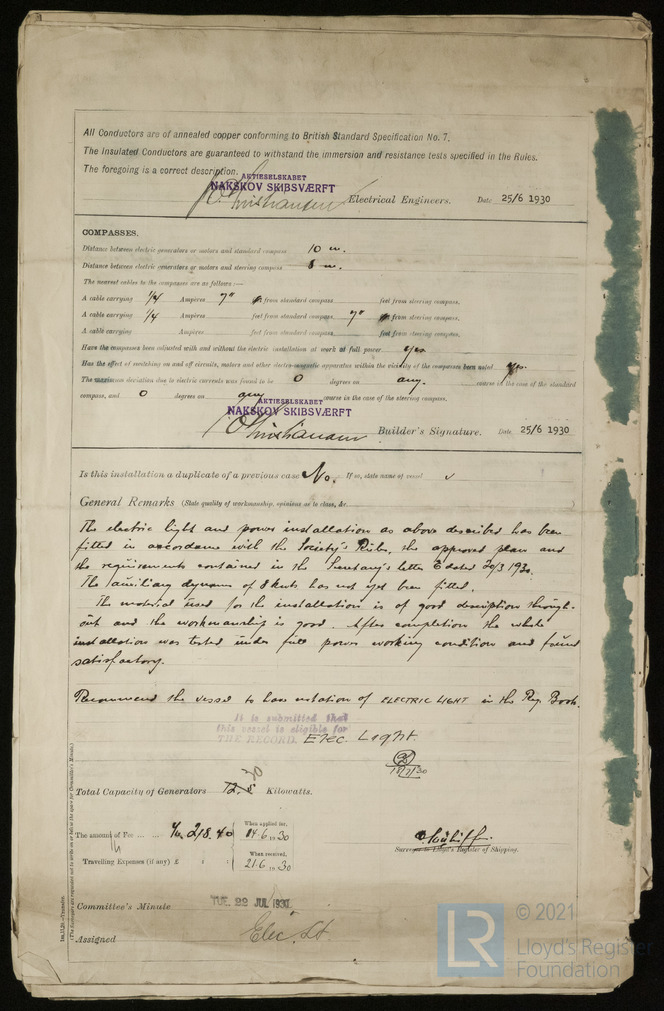 All Conductors are of annealed copper conforming to British Standard Specification No. 7.
The Insulated Conductors are guaranteed to withstand the immersion and resistance tests specified in the Rules.
The foregoing is a correct description.
AKTIESELSKABET
NAKSKOV SKIBSVÆRFT
Electrical Engineers. Date 25/6 1930
COMPASSES.
Distance between electric generators or motors and standard compass 10 m.
Distance between electric generators or motors and steering compass 8 m.
The nearest cables to the compasses are as follows:—
A cable carrying 1/4 Ampères 7" from standard compass feet from steering compass.
A cable carrying 1/4 Ampères feet from standard compass 7" from steering compass.
A cable carrying Ampères feet from standard compass feet from steering compass.
Have the compasses been adjusted with and without the electric installation at work at full power yes
Has the effect of switching on and off circuits, motors and other electro-magnetic apparatus within the vicinity of the compasses been noted yes.
The maximum deviation due to electric currents was found to be 0 degrees on any. course in the case of the standard
compass, and 0 degrees on any course in the case of the steering compass.
AKTIESELSKABET
NAKSKOV SKIBSVÆRFT
Builder's Signature. Date 25/6 1930
Is this installation a duplicate of a previous case No. If so, state name of vessel
General Remarks (State quality of workmanship, opinions as to class, &c.
The electric light and power installation as above described has been
fitted in accordance with the Society's Rules, the approved plan and
the requirements contained in the Secretary's letter E dated 20/3 1930.
The auxiliary dynamo of 8 kwts has not yet been fitted.
The material used for the installation is of good description through-
out and the workmanship is good. After completion the whole
installation was tested under full power working condition and found
satisfactory.
Recommend the vessel to have notation of ELECTRIC LIGHT in the Reg. Book.
It is submitted that
this vessel is eligible for
THE RECORD. Elec. Light.
Total Capacity of Generators Kilowatts.
The amount of Fee ... ... 218.40
When applied for,
14.6.1930
When received,
21.6.1930
Travelling Expenses (if any) £
Surveyor to Lloyd's Register of Shipping.
Committee's Minute TUE. 22 JUL 1930
Assigned Elec. Lt.
© 2021
LR
Lloyd's Register
Foundation